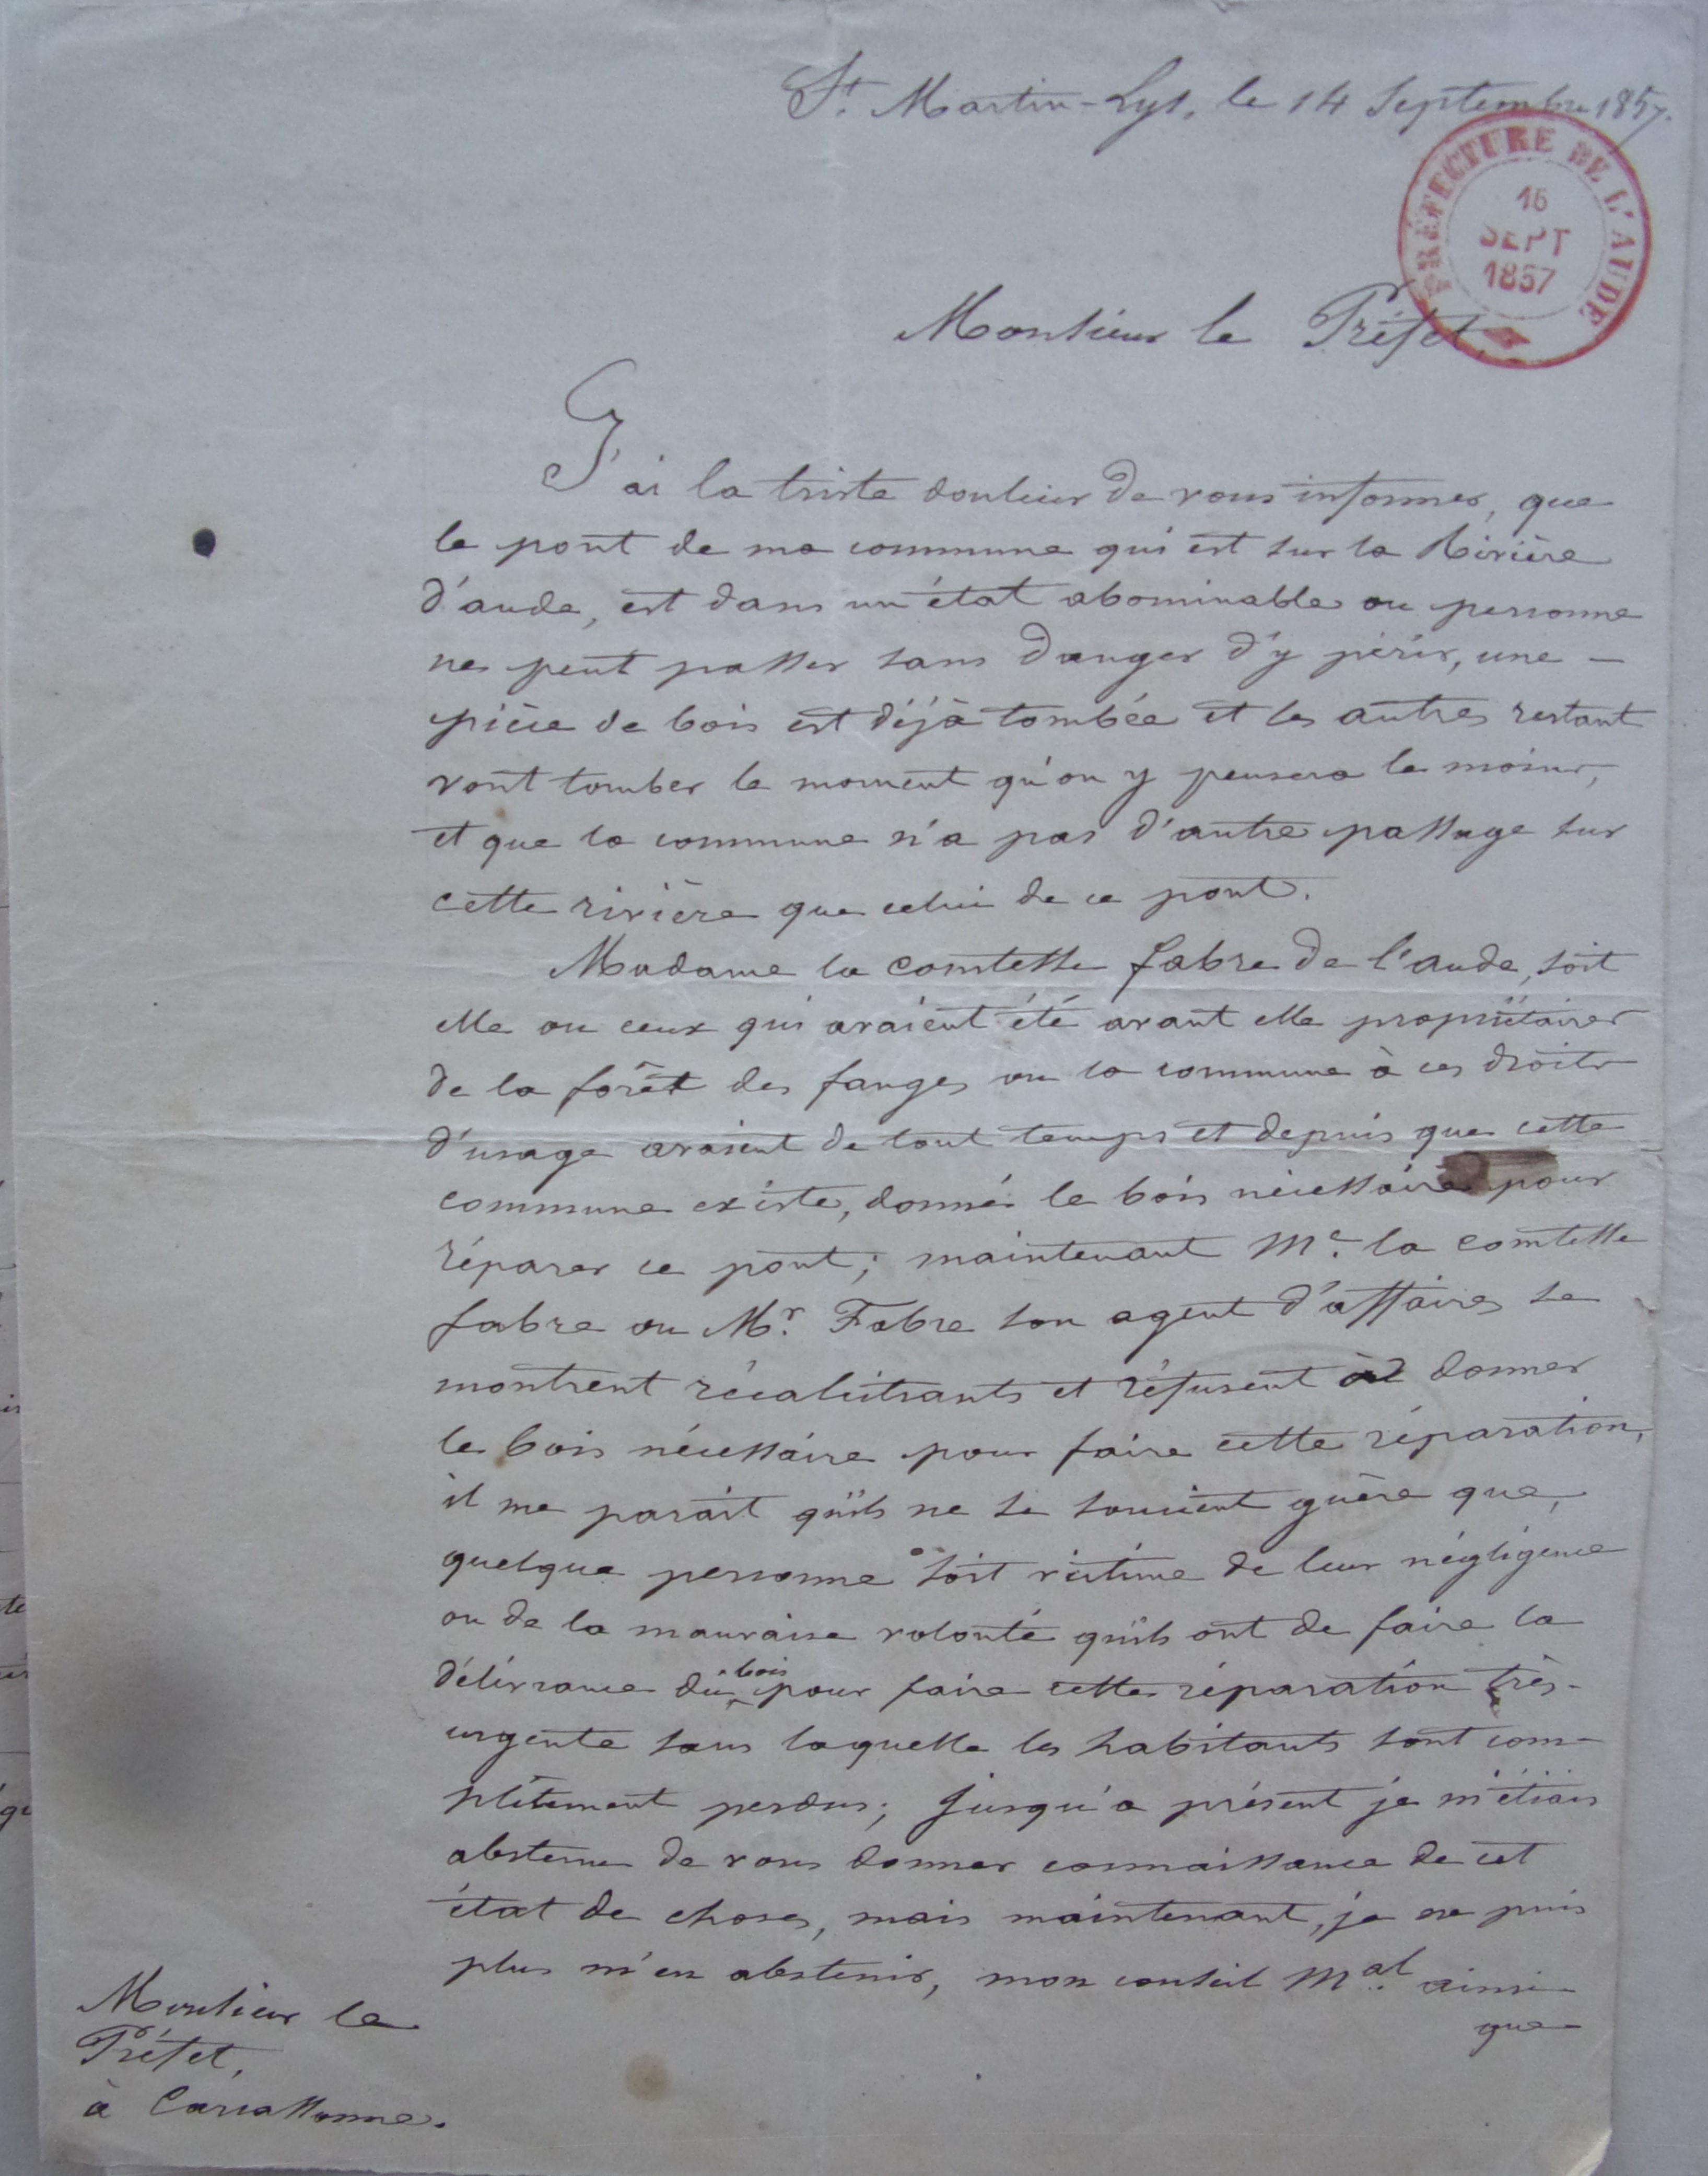 St. Martin-Lys, le 14 Septembre 1857.
PRÉFECTURE DE L'AUDE
16
SEPT
1857
Monsieur le Préfet,
J'ai la triste douleur de vous informer, que
le pont de ma commune qui est sur la Rivière
d'aude, est dans un état abominable ou personne
ne peut passer sans danger d'y périr, une -
pièce de bois est déjà tombée et les autres restant
vont tomber le moment qu'on y pensera le moins,
et que la commune n'a pas d'autre passage sur
cette rivière que celui de ce pont.
Madame la comtesse fabre de l'aude, soit
elle ou ceux qui avaient été avant elle propriétaires
de la forêt des fanges ou la commune à ces droits
d'usage avaient de tout temps et depuis que cette
commune existe, donné le bois nécessaire pour
réparer ce pont; maintenant Me. la comtesse
fabre ou Mr. Fabre son agent d'affaires se
montrent récalcitrants et réfusent de donner
le bois nécessaire pour faire cette réparation,
il me parait qu'ils ne se soucient guère que,
quelque personne soit victime de leur négligence
ou de la mauvaise volonté qu'ils ont de faire la
délivrance du bois pour faire cette réparation très-
urgente sans laquelle les habitants sont com-
plètement perdus; jusqu'a présent je m'étiais
abstenu de vous donner connaissance de cet
état de choses, mais maintenant, je ne puis
plus m'en abstenir, mon conseil Mal. ainsi
que
Monsieur le
Préfet,
à Carcassonne.